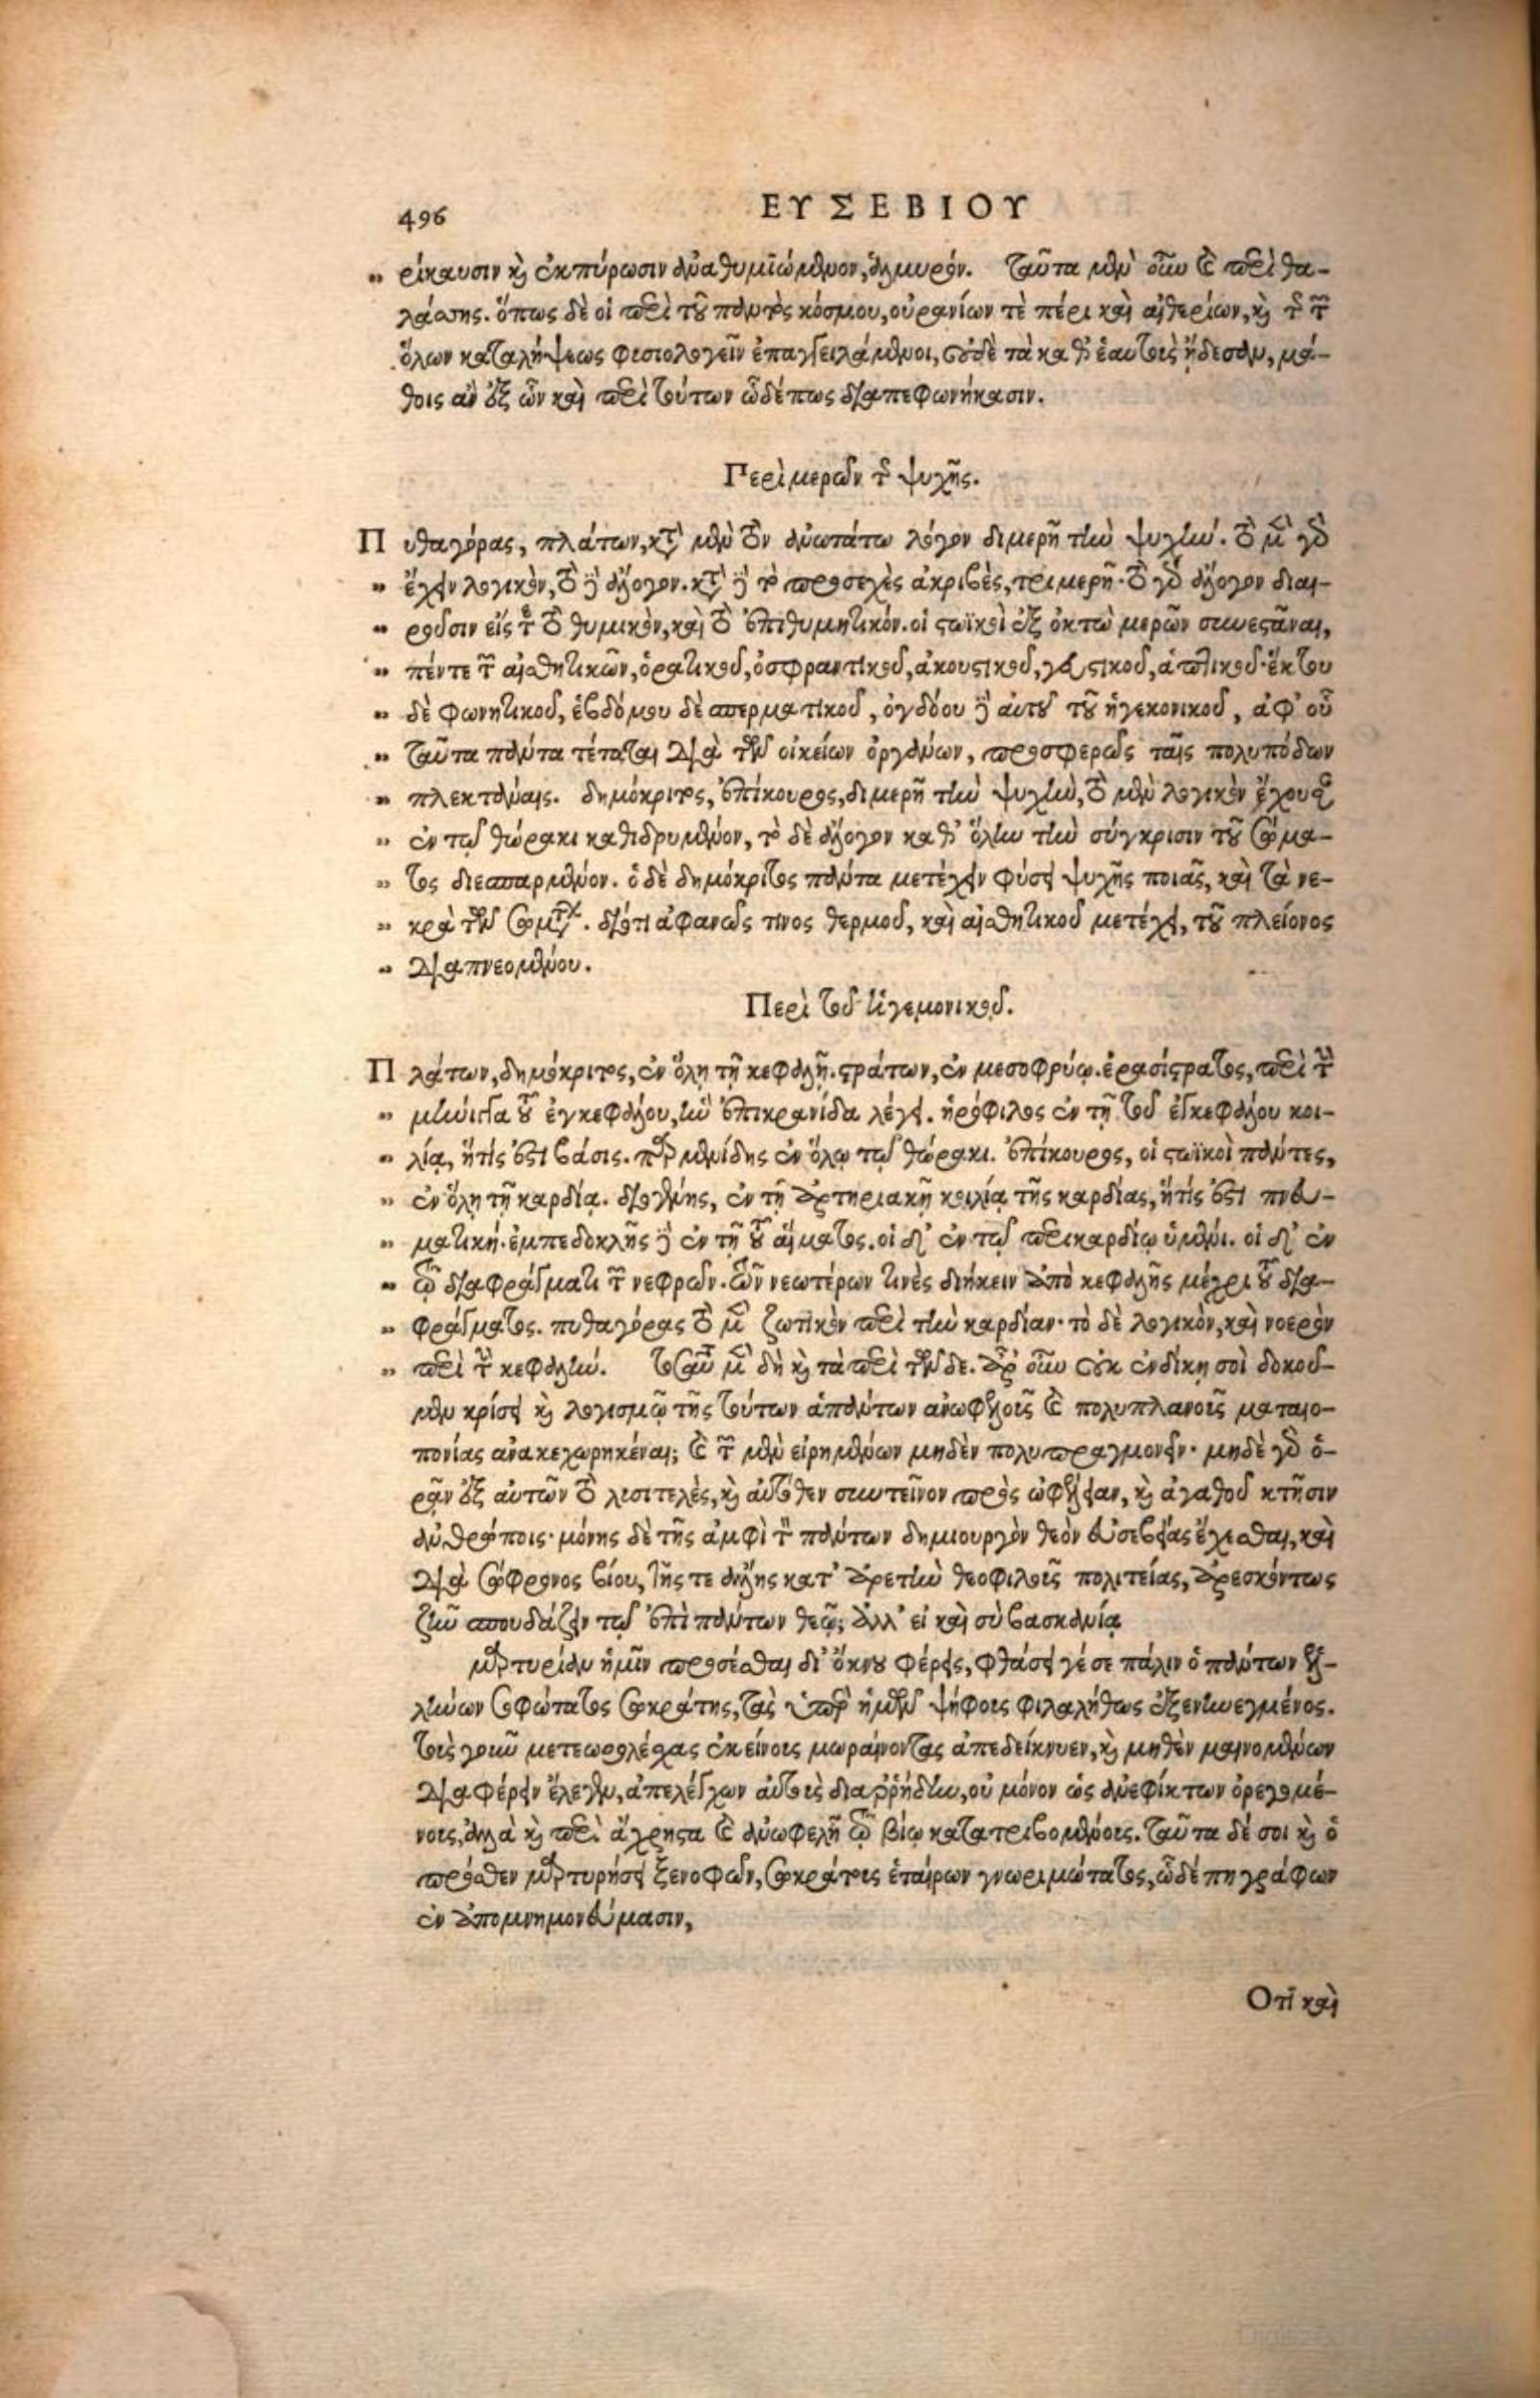 496
ΕΥΣΕΒΙΟΥ
ρίκαυσιν καὶ ἐκπύρωσιν ἀναθυμιώμενον, ἁλμυρόν. ταῦτα μὲν οὖν καὶ περὶ θα-
λάσσης. ὅπως δὲ οἱ περὶ τοῦ παντὸς κόσμου, οὐρανίων τὲ πέρι καὶ αἰθερίων, καὶ τῆς τῶν
ὅλων καταλήψεως φισιολογεῖν ἐπαγγειλάμενοι, οὐδὲ τὰ καθ' ἑαυτοὺς ᾔδεσαν, μά-
θοις ἂν ἐξ ὧν καὶ περὶ τούτων ὧδέ πως διαπεφωνήκασιν.
Περὶ μερῶν τῆς ψυχῆς.
Πυθαγόρας, πλάτων, κατὰ μὲν τὸν ἀνωτάτω λόγον διμερῆ τὴν ψυχήν. τὸ μὲν γὰρ
ἔχειν λογικὸν, τὸ δὲ ἄλογον. κατὰ δὲ τὸ προσεχὲς ἀκριβὲς, τριμερῆ· τὸ γὰρ ἄλογον διαι-
ροῦσιν εἴς τε τὸ θυμικὸν, καὶ τὸ ἐπιθυμητικόν. οἱ στωϊκοὶ ἐξ ὀκτὼ μερῶν συνεστάναι,
πέντε τῶν αἰσθητικῶν, ὁρατικοῦ, ὀσφραντικοῦ, ἀκουστικοῦ, γευστικοῦ, ἁπτικοῦ· ἕκτου
δὲ φωνητικοῦ, ἑβδόμου δὲ σπερματικοῦ, ὀγδόου δὲ αὐτοῦ τοῦ ἡγεκονικοῦ, ἀφ' οὗ
ταῦτα πάντα τέταται διὰ τῶν οἰκείων ὀργάνων, προσφερῶς ταῖς πολυπόδων
πλεκτάναις. δημόκριτος, ἐπίκουρος, διμερῆ τὴν ψυχὴν, τὸ μὲν λογικὸν ἔχουσαν
ἐν τῷ θώρακι καθιδρυμένον, τὸ δὲ ἄλογον καθ' ὅλην τὴν σύγκρισιν τοῦ σώμα-
τος διεσπαρμένον. ὁ δὲ δημόκριτος πάντα μετέχειν φύσει ψυχῆς ποιᾶς, καὶ τὰ νε-
κρὰ τῶν σωμάτων. διότι ἀφανῶς τινος θερμοῦ, καὶ αἰσθητικοῦ μετέχει, τοῦ πλείονος
διαπνεομένου.
Περὶ τοῦ ἡγεμονικοῦ.
Πλάτων, δημόκριτος, ἐν ὅλῃ τῇ κεφαλῇ. στράτων, ἐν μεσοφρύῳ. ἐρασίστρατος, περὶ τὴν
μήνιγγα τοῦ ἐγκεφάλου, ἣν ἐπικρανίδα λέγει. ἡρόφιλος ἐν τῇ τοῦ ἐγκεφάλου κοι-
λίᾳ, ἥτίς ἐστι βάσις. παρμενίδης ἐν ὅλῳ τῷ θώρακι. ἐπίκουρος, οἱ στωϊκοὶ πάντες,
ἐν ὅλῃ τῇ καρδίᾳ. διογένης, ἐν τῇ ἀρτηριακῇ κοιλίᾳ τῆς καρδίας, ἥτίς ἐστι πνευ-
ματική. ἐμπεδοκλῆς δὲ ἐν τῇ τοῦ αἵματος. οἱ δ' ἐν τῷ περικαρδίῳ ὑμένι. οἱ δ' ἐν
τῷ διαφράγματι τῶν νεφρῶν. τῶν νεωτέρων τινὲς διήκειν ἀπὸ κεφαλῆς μέχρι τοῦ δια-
φράγματος. πυθαγόρας τὸ μὲν ζωτικὸν περὶ τὴν καρδίαν· τὸ δὲ λογικὸν, καὶ νοερὸν
περὶ τὴν κεφαλήν. τοσαῦτα μὲν δὴ καὶ τὰ περὶ τῶνδε. ἆρ' οὖν οὐκ ἐνδίκῃ σοὶ δοκοῦ-
μεν κρίσει καὶ λογισμῷ τῆς τούτων ἁπάντων ἀνωφελοῦς καὶ πολυπλανοῦς ματαιο-
πονίας ἀνακεχωρηκέναι; καὶ τῶν μὲν εἰρημένων μηδὲν πολυπραγμονεῖν· μηδὲ γὰρ ὁ-
ρᾶν ἐξ αὐτῶν τὸ λισιτελὲς, καὶ αὐτόθεν συντεῖνον πρὸς ὠφέλειαν, καὶ ἀγαθοῦ κτῆσιν
ἀνθρώποις· μόνης δὲ τῆς ἀμφὶ τὸν πάντων δημιουργὸν θεὸν εὐσεβείας ἔχεσθαι, καὶ
διὰ σώφρονος βίου, τῆς τε ἄλλης κατ' ἀρετὴν θεοφιλοῦς πολιτείας, ἀρεσκόντως
ζῆν σπουδάζειν τῷ ἐπὶ πάντων θεῷ; ἀλλ' εἰ καὶ σὺ βασκανίᾳ
μαρτυρίαν ἡμῖν προσέσθαι δι' ὄκνου φέρεις, φθάσει γέ σε πάλιν ὁ πάντων ἑλ-
λήνων σοφώτατος σωκράτης, τὰς ὑπὲρ ἡμῶν ψήφους φιλαλήθως ἐξενηνεγμένος.
τοὺς γοῦν μετεωρολέσχας ἐκείνους μωραίνοντας ἀπεδείκνυεν, καὶ μηθὲν μαινομένων
διαφέρειν ἔλεγεν, ἀπελέγχων αὐτοὺς διαῤῥήδην, οὐ μόνον ὡς ἀνεφίκτων ὀρεγομέ-
νους, ἀλλὰ καὶ περὶ ἄχρηστα καὶ ἀνωφελῆ τῷ βίῳ κατατριβομένους. ταῦτα δέ σοι καὶ ὁ
πρόσθεν μαρτυρήσει ξενοφῶν, σωκράτους ἑταίρων γνωριμώτατος, ὧδέ πη γράφων
ἐν ἀπομνημονεύμασιν,
Οτι καὶ